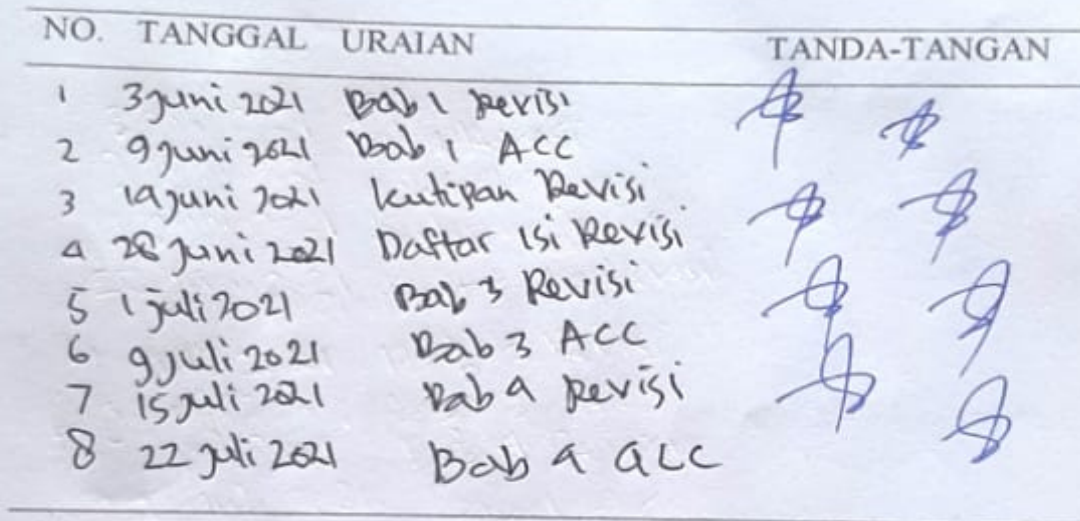 NO. TANGGAL URAIAN TANDA-TANGAN
1 3 juni 2021 Bab 1 Revisi
2 9 juni 2021 Bab 1 ACC
3 14 juni 2021 kutipan Revisi
4 28 juni 2021 Daftar isi Revisi
5 1 juli 2021 Bab 3 Revisi
6 9 juli 2021 Bab 3 ACC
7 15 juli 2021 Bab 4 Revisi
8 22 juli 2021 Bab 4 acc